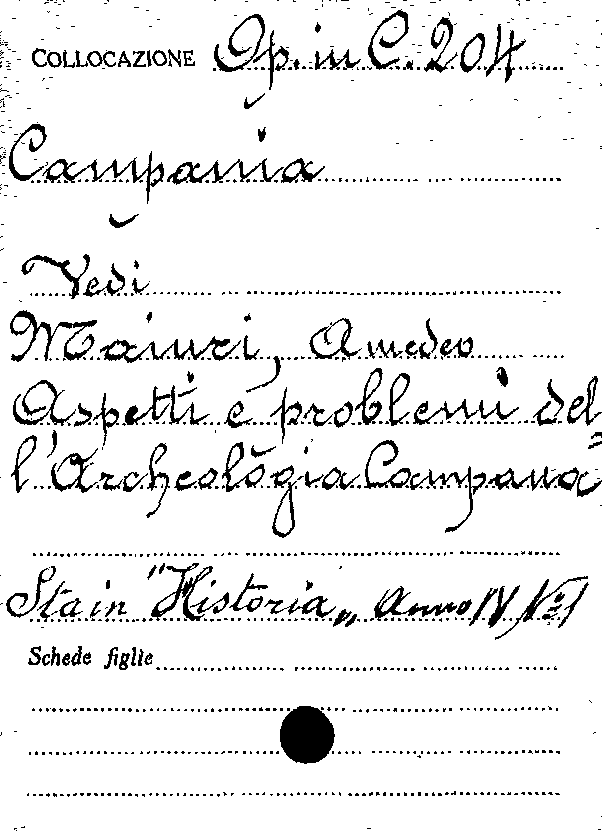 COLLOCAZIONE Op. in C. 204
Campania
Vedi
Maiuri, Amedeo
Aspetti e problemi del=
l'Archeologia Campana
Sta in "Historia„ Anno IV N.º 1
Schede figlie